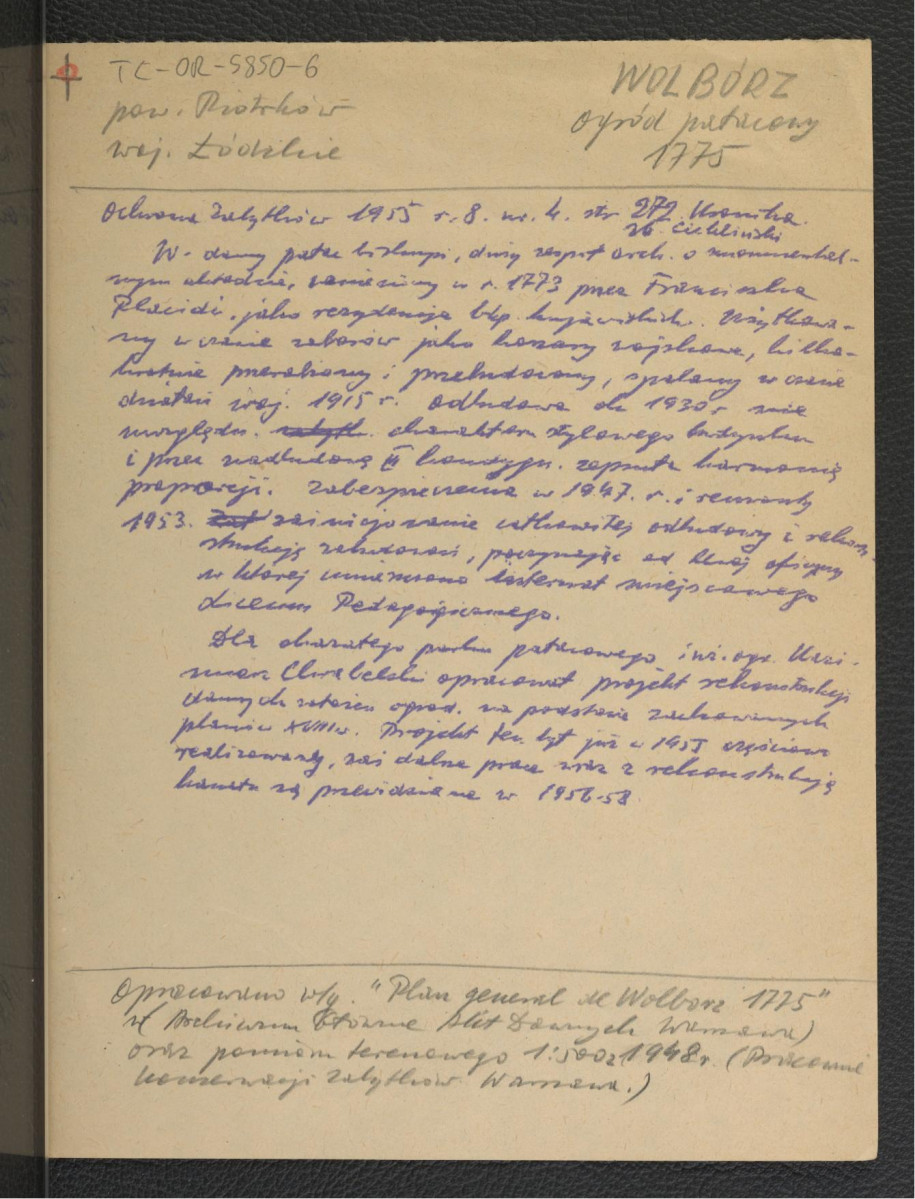 TC-OR-5850-6
pow. Piotrków
woj. Łódzkie
WOLBÓRZ
Ogród pałacowy
1775
Ochrona Zabytków 1955 r. 8. nr. 4. str 272 Kronika
Zb. Ciekliński
W. dawny pałac biskupi, duży zespół arch. o monumental-
nym układzie, wzniesiony w r. 1773 przez Franciszka
Placidi, jako rezydencja bkp. kujawskich. Użytkowa-
ny w czasie zaborów jako koszary wojskowe, kilka-
krotnie przerabiany i przebudowany, spalony w czasie
działań woj. 1915 r. Odbudowa ok 1930 r nie
uwzględn. charakteru stylowego budynku
i przez nadbudowę III kondygn. zepsuła harmonię
proporcji. Zabezpieczenia w 1947. r. i remonty
1953. zainicjowanie całkowitej odbudowy i rekon-
strukcję zabudowań, poczynając od lewej oficyny
w której umieszczono internat miejscowego
Liceum Pedagogicznego.
Dla okazałego parku pałacowego, inż. ogr. Kazi-
mierz Chrabelski opracował projekt rekonstrukcji
dawnych założeń ogrod. na podstawie zachowanych
planów XVIII w. Projekt ten był już w 1955 częściowo
realizowany, zaś dalsze prace wraz z rekonstrukcją
kanału są przewidziane w 1956-58
Opracowano w/g. "Plan general de Wolborz 1775"
(Archiwum Główne Akt Dawnych Warszawa)
oraz pomiaru terenowego 1:500 z 1948 r. (Pracownie
Konserwacji Zabytków Warszawa.)